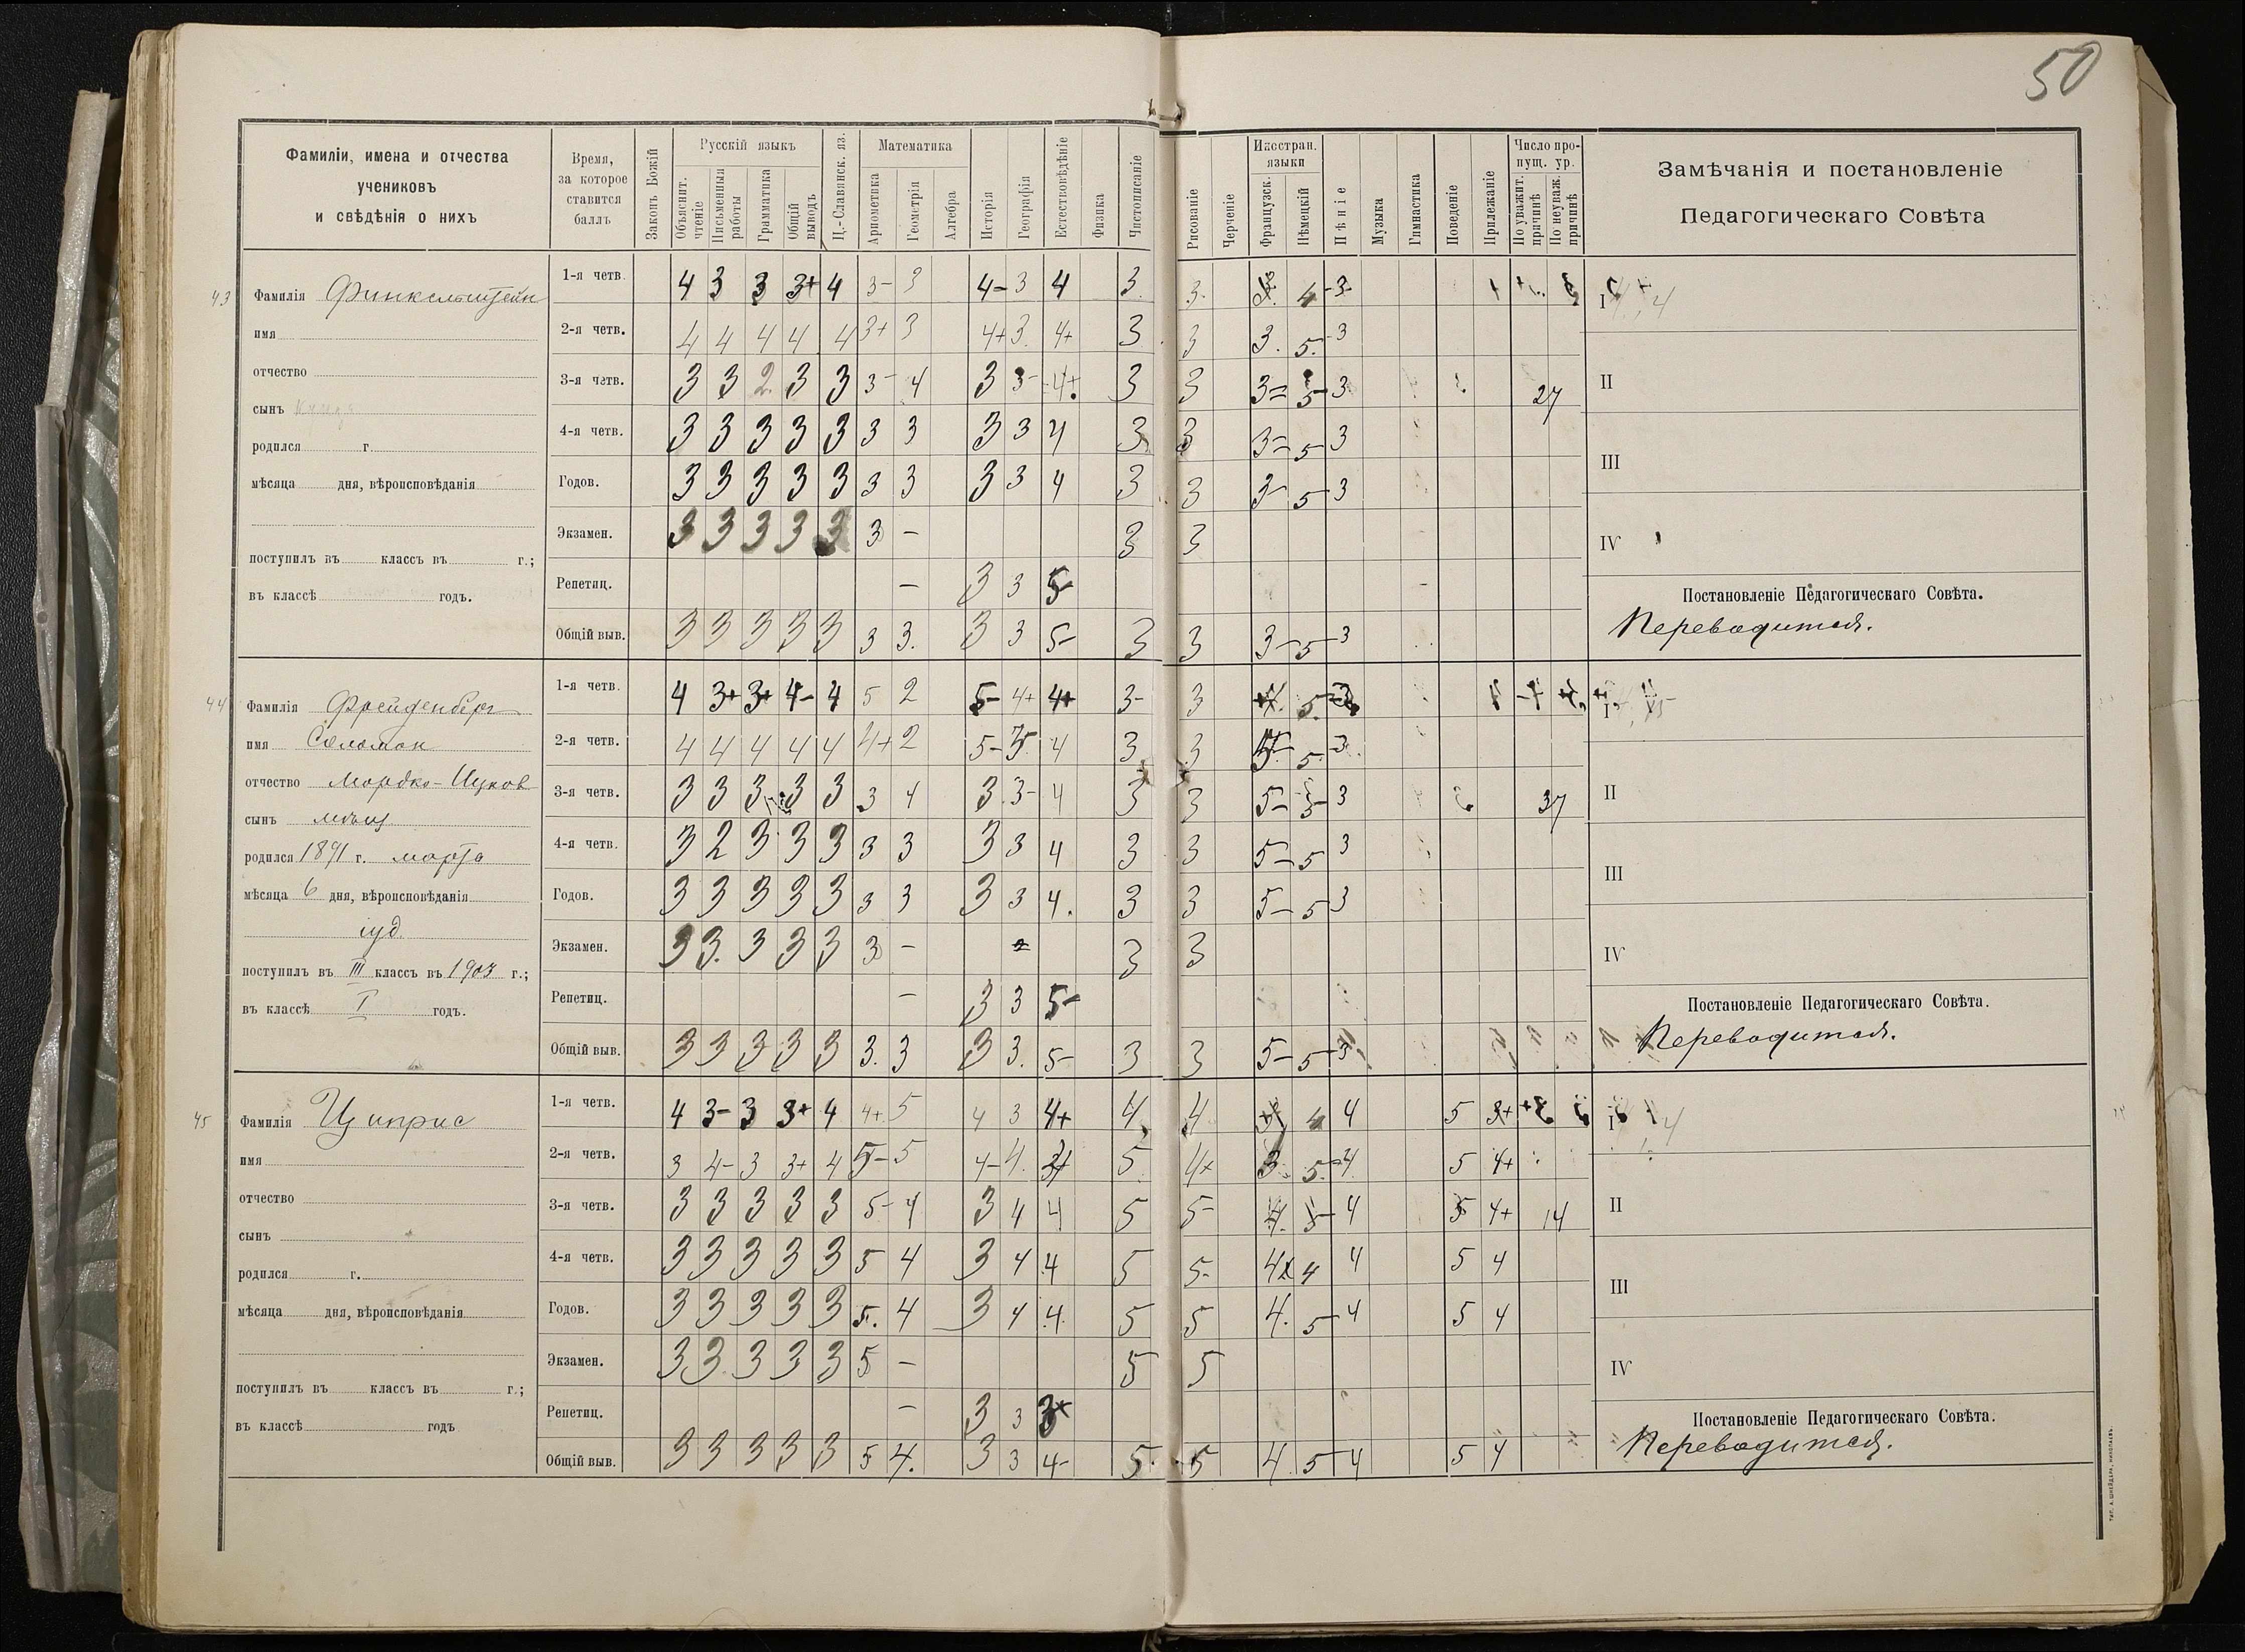 50
Фамиліи, имена и отчества
учениковъ
и свѣдѣнія о нихъ
Время,
за которое
ставится
баллъ
Законъ Божій
Русскій языкъ
Объяснит. чтеніе
Письменныя работы
Грамматика
Общій выводъ
Ц.-Славянск. яз.
Математика
Ариѳметика
Геометрія
Алгебра
Исторія
Географія
Естествовѣдѣніе
Физика
Чистописаніе
Рисованіе
Черченіе
Иностран. языки
Французск.
Нѣмецкій
Пѣніе
Музыка
Гимнастика
Поведеніе
Прилежаніе
Число про-
пущ. ур.
По уважит. причинѣ
По неуваж. причинѣ
Замѣчанія и постановленіе
Педагогическаго Совѣта
43 Фамилія Финкельштейн
имя
отчество
сынъ
родился г.
мѣсяца дня, вѣроисповѣданія
поступилъ въ классъ въ г.;
въ классѣ годъ.
1-я четв. 4 3 3 3+ 4 3- 3 4- 3 4 3 3 4 3
2-я четв. 4 4 4 4 4 3+ 3 4+ 3 4+ 3 3 3 5 3
3-я четв. 3 3 2 3 3 3- 4 3 3- 4+ 3 3 3= 5- 3 27
4-я четв. 3 3 3 3 3 3 3 3 3 4 3 3 3= 5 3
Годов. 3 3 3 3 3 3 3 3 3 4 3 3 3- 5 3
Экзамен. 3 3 3 3 3 3 - 3 3
Репетиц. - 3 3 5-
Общій выв. 3 3 3 3 3 3 3. 3 3 5- 3 3 3- 5 3
I
II
III
IV
Постановленіе Педагогическаго Совѣта.
Переводится.
44 Фамилія Фрейденберг
имя Соломон
отчество Мордко-Ицков
сынъ мѣщ
родился 1891 г. марта
мѣсяца 6 дня, вѣроисповѣданія
іуд
поступилъ въ III классъ въ 1903 г.;
въ классѣ I годъ.
1-я четв. 4 3+ 3+ 4- 4 5 2 5- 4+ 4+ 3- 3 5
2-я четв. 4 4 4 4 4 4+ 2 5- 4 3 3 5 3
3-я четв. 3 3 3 3 3 3 4 3 3- 4 3 3 5- 3 37
4-я четв. 3 2 3 3 3 3 3 3 3 4 3 3 5- 5 3
Годов. 3 3 3 3 3 3 3 3 3 4. 3 3 5- 5 3
Экзамен. 3 3. 3 3 3 3 - 3 3
Репетиц. - 3 3 5-
Общій выв. 3 3 3 3 3 3. 3 3 3. 5- 3 3 5- 5 3
I
II
III
IV
Постановленіе Педагогическаго Совѣта.
Переводится.
45 Фамилія Циприс
имя
отчество
сынъ
родился г.
мѣсяца дня, вѣроисповѣданія
поступилъ въ классъ въ г.;
въ классѣ годъ
1-я четв. 4 3- 3 3+ 4 4+ 5 4 3 4+ 4 4 4 4 5 3+
2-я четв. 3 4- 3 3+ 4 5- 5 4- 4 5 4+ 3 5 4 5 4+
3-я четв. 3 3 3 3 3 5- 4 3 4 4 5 5- 4. 5 4 5 4+ 14
4-я четв. 3 3 3 3 3 5 4 3 4 4 5 5- 4 4 4 5 4
Годов. 3 3 3 3 3 5. 4 3 4 4 5 5 4. 5 4 5 4
Экзамен. 3 3 3 3 3 5 - 5 5
Репетиц. - 3 3 3+
Общій выв. 3 3 3 3 3 5 4. 3 3 4- 5. 5 4 5 4 5 4
I
II
III
IV
Постановленіе Педагогическаго Совѣта.
Переводится.
ТИП. А. ШНЕЙДЕРА, НИКОЛАЕВЪ.